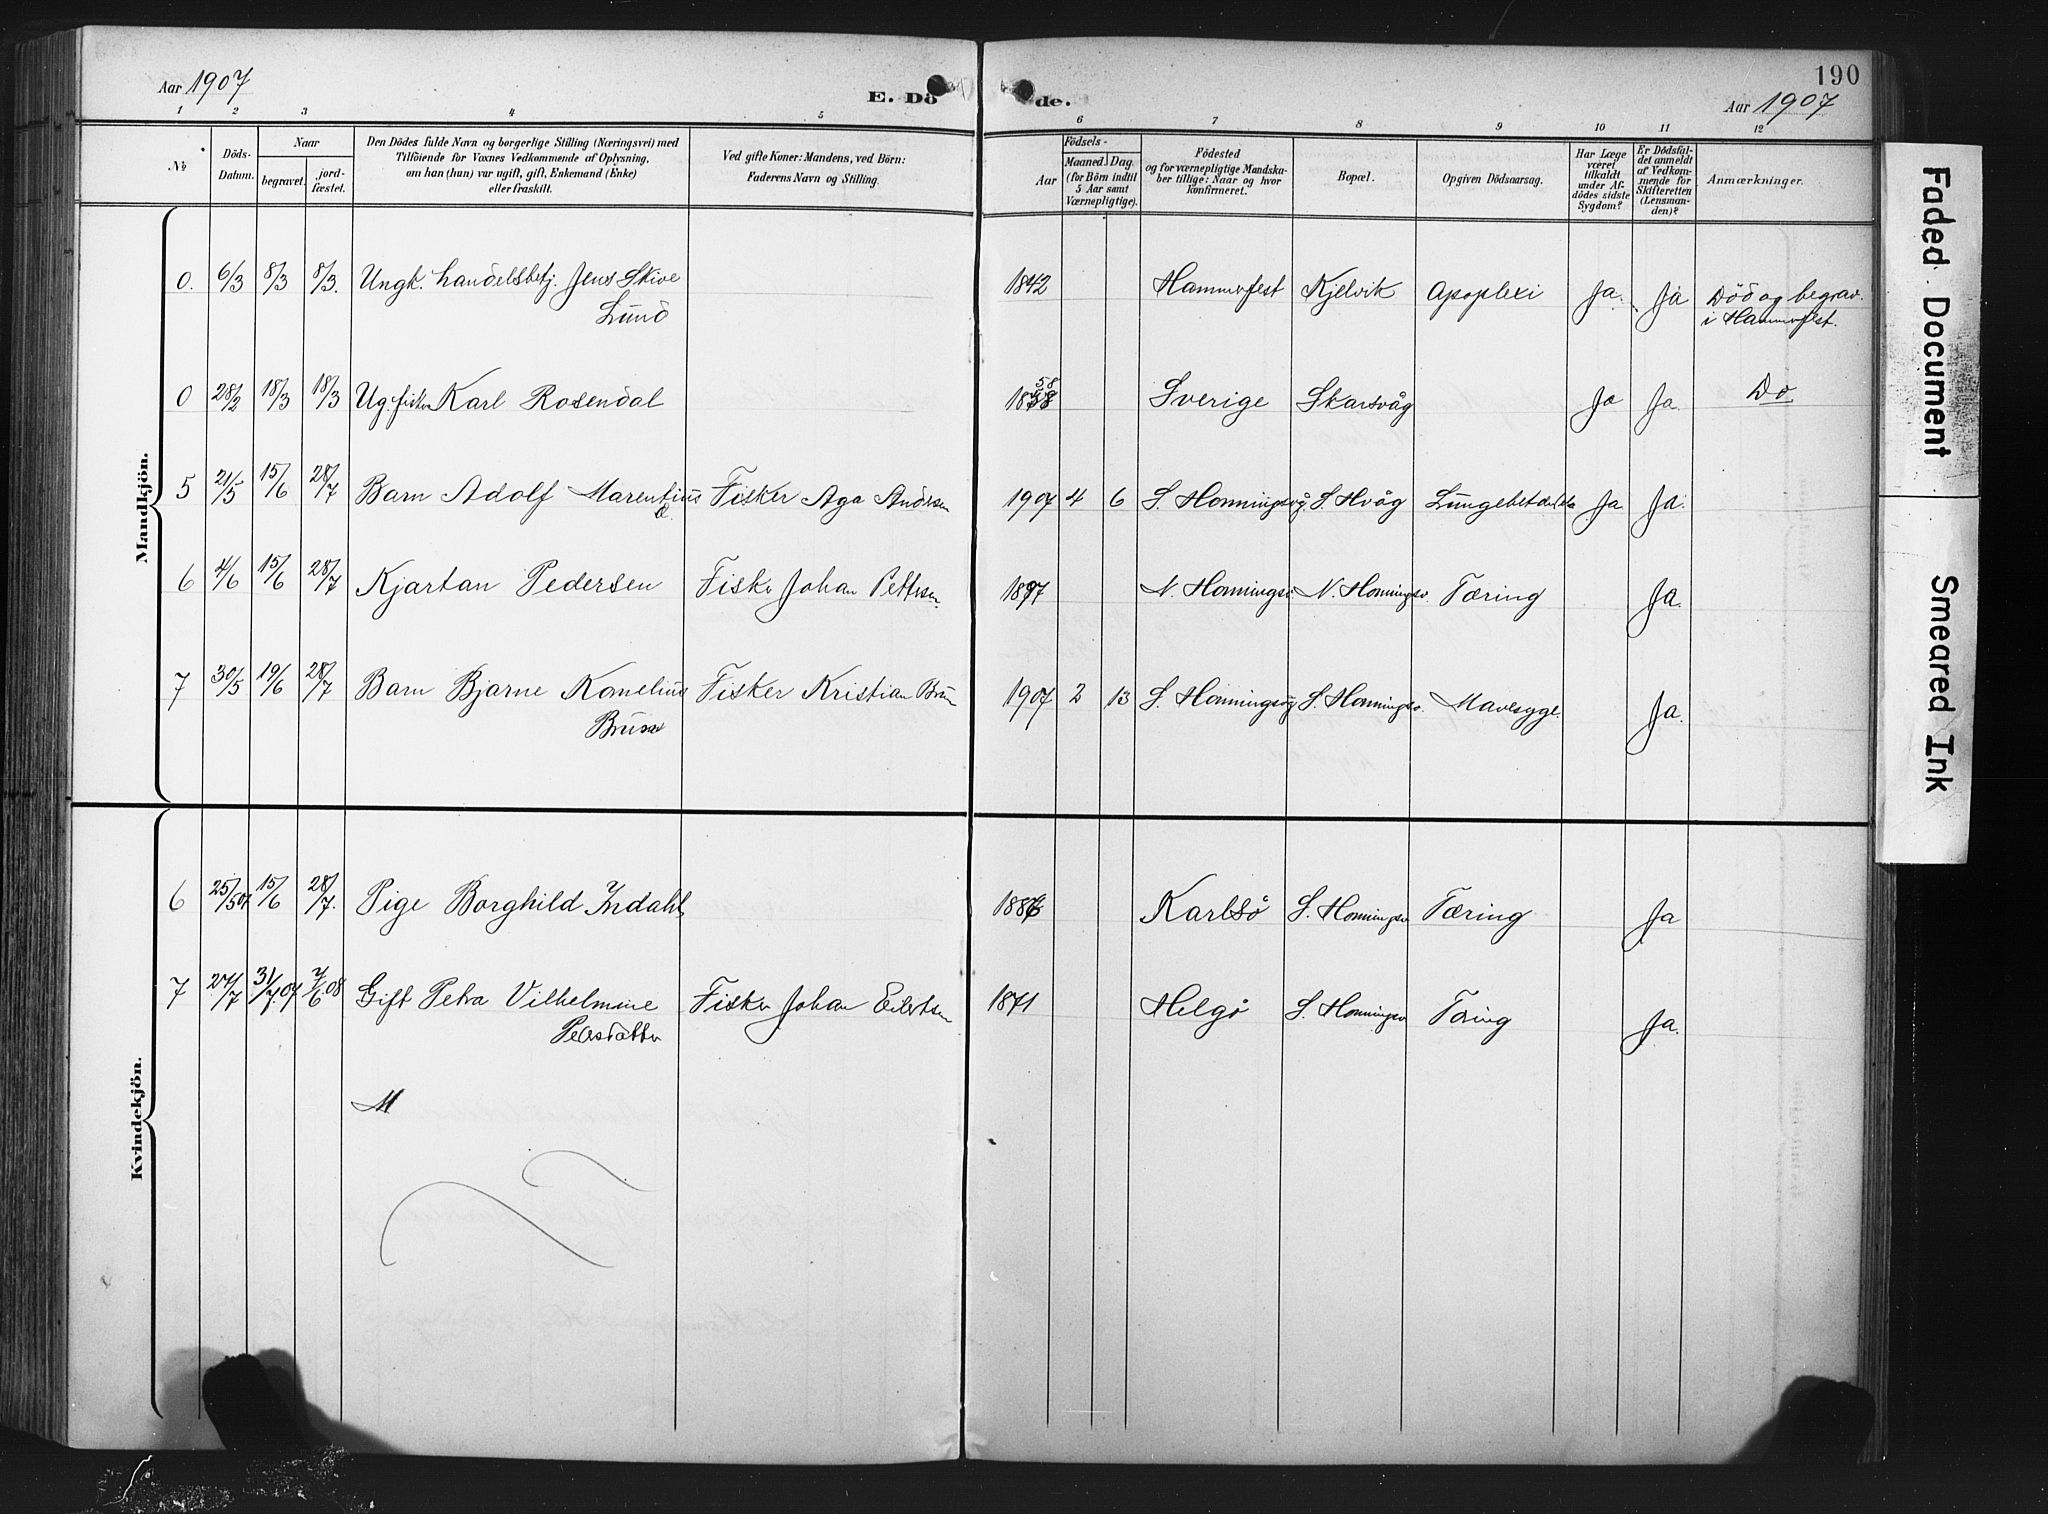 190
Aar 1907
E. Dö de.
Aar 1907
1 2 3 4 5 6 7 8 9 10 11 12
No
Döds-Datum.
Naar
begravet.
jord-fæstet.
Den Dödes fulde Navn og borgerlige Stilling (Næringsvei) med
Tilföiende for Voxnes Vedkommende af Oplysning,
om han (hun) var ugift, gift, Enkemand (Enke)
eller fraskilt.
Ved gifte Koner: Mandens, ved Börn:
Faderens Navn og Stilling.
Födsels-
Aar
Maaned. Dag.
(for Börn indtil
5 Aar samt
Værnepligtige).
Födested
og for værnepligtige Mandska-
ber tillige: Naar og hvor
konfirmeret.
Bopæl.
Opgiven Dödsaarsag.
Har Læge
været
tilkaldt
under Af-
dödes sidste
Sygdom?
Er Dödsfal-
det anmeldt
af Vedkom-
mende for
Skifteretten
(Lensman-
den)?
Anmærkninger.
Mandkjön.
0. 6/3 8/3 8/3. Ungk. handelsbetj. Jens Skive 1842 Hammerfest Kjelvik Apoplexi Ja. Ja Död og begrav.
Lund i Hammerfest.
0 28/2 18/3 18/3 Ug. fisker Karl Rosendal 58 Sverige Skarsvåg Ja Ja. Do
5 21/5 15/6 28/7 Barn Adolf Marentius Fisker Aga Andersen 1907 4 6 S. Honningsvåg S. Hvåg Ja Ja.
6 4/6 15/6 28/7 Kjartan Pedersen Fisker Johan Pettersen. 1897 N. Honningsv. N. Honningsv. Tæring Ja.
7 30/5 19/6 28/7 Barn Bjarne Kornelius Fisker Kristian Brun 1907 2 13 S. Honningsvåg S. Honningsv. Mavesyge. Ja.
Brun
Kvindekjön.
6 25/5 07 15/6 28/7. Pige Borghild Indahl Karlsö S. Honningsv Tæring Ja
7 24/7 31/7.07 7/6.08 Gift Petra Vilhelmine Fisker Johan Eilertsen 1871 Helgö S. Honningsv Tæring Ja.
Pedersdatter
Faded Document
Smeared Ink